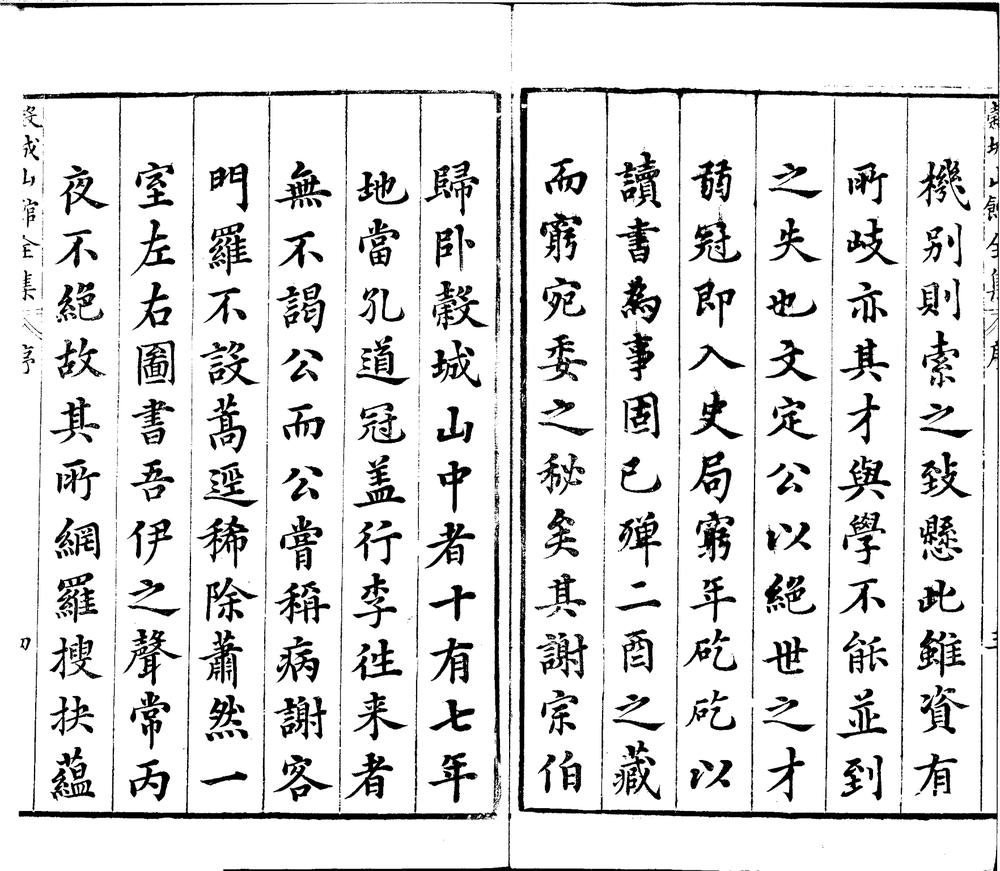 機別則索之致懸此雖資有
所岐亦其才與學不能並到
之失也文定公以絕世之才
弱冠即入史局窮年矻矻以
讀書為事固已殫二酉之藏
而窮宛委之秘矣其謝宗伯
歸卧穀城山中者十有七年
地當孔道冠盖行李徃来者
無不謁公而公嘗稱病謝客
門羅不設蒿逕稀除蕭然一
室左右圖書吾伊之聲常丙
夜不絕故其所網羅搜抉蘊
穀城山館全集 序